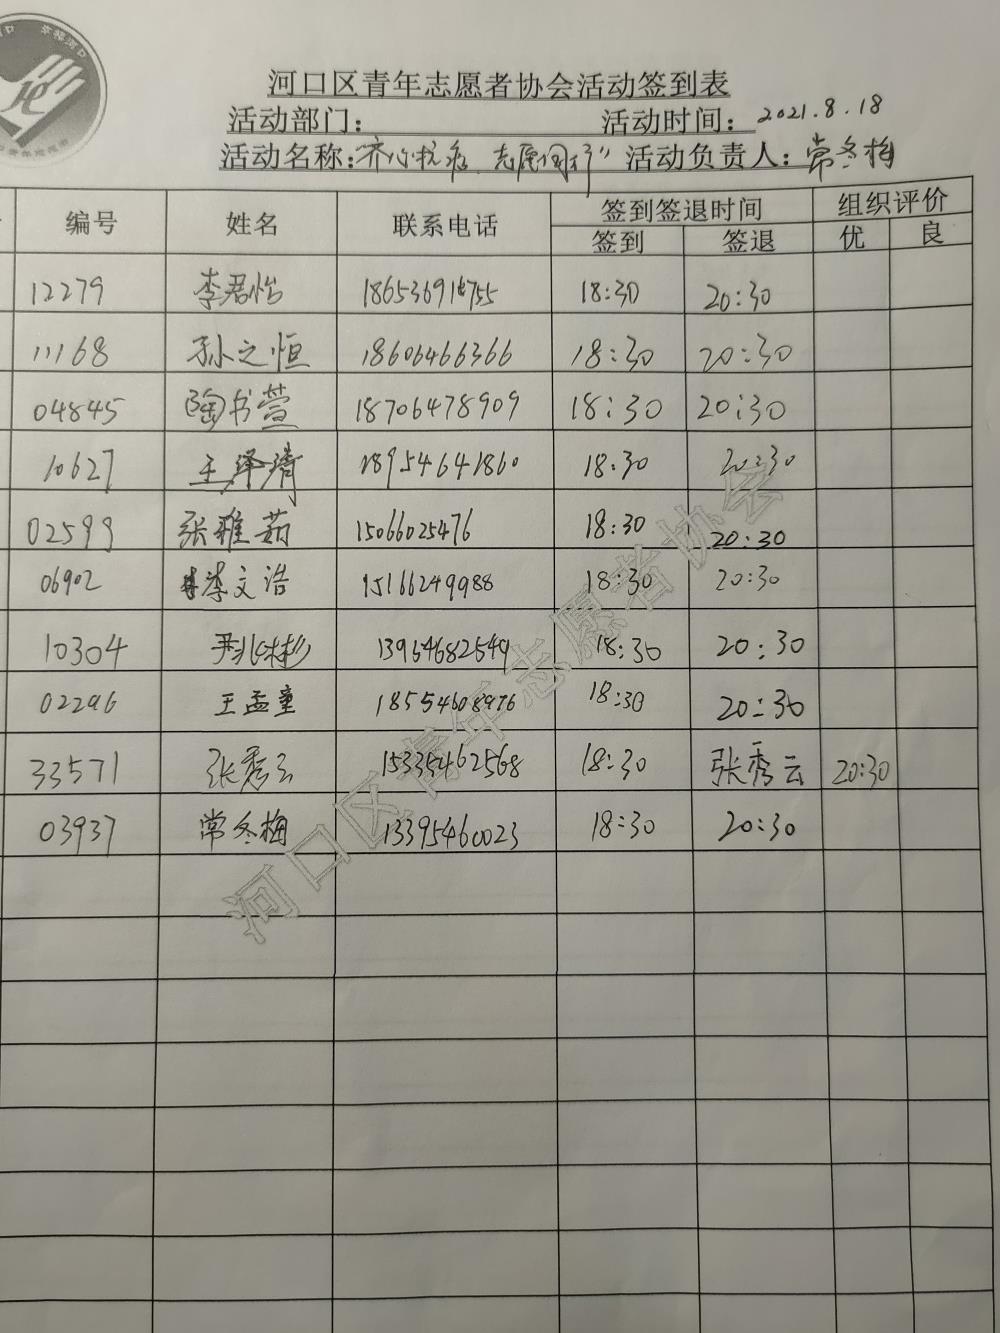 河口区青年志愿者协会活动签到表
活动部门： 活动时间：2021.8.18
活动名称："齐心抗疫 志愿同行" 活动负责人：常冬梅
编号 姓名 联系电话 签到签退时间 组织评价
签到 签退 优 良
12279 李君怡 18:30 20:30
11168 孙之恒 18606466366 18:30 20:30
04845 陶书萱 18706478909 18:30 20:30
10627 王泽清 18954641860 18:30 20:30
02599 张雅茹 15066025476 18:30 20:30
06902 李文浩 15166249988 18:30 20:30
10304 尹兆彬 13954682549 18:30 20:30
02296 王孟童 18554608976 18:30 20:30
33571 张秀云 15335462568 18:30 张秀云 20:30
03937 常冬梅 13395460023 18:30 20:30
河口区青年志愿者协会